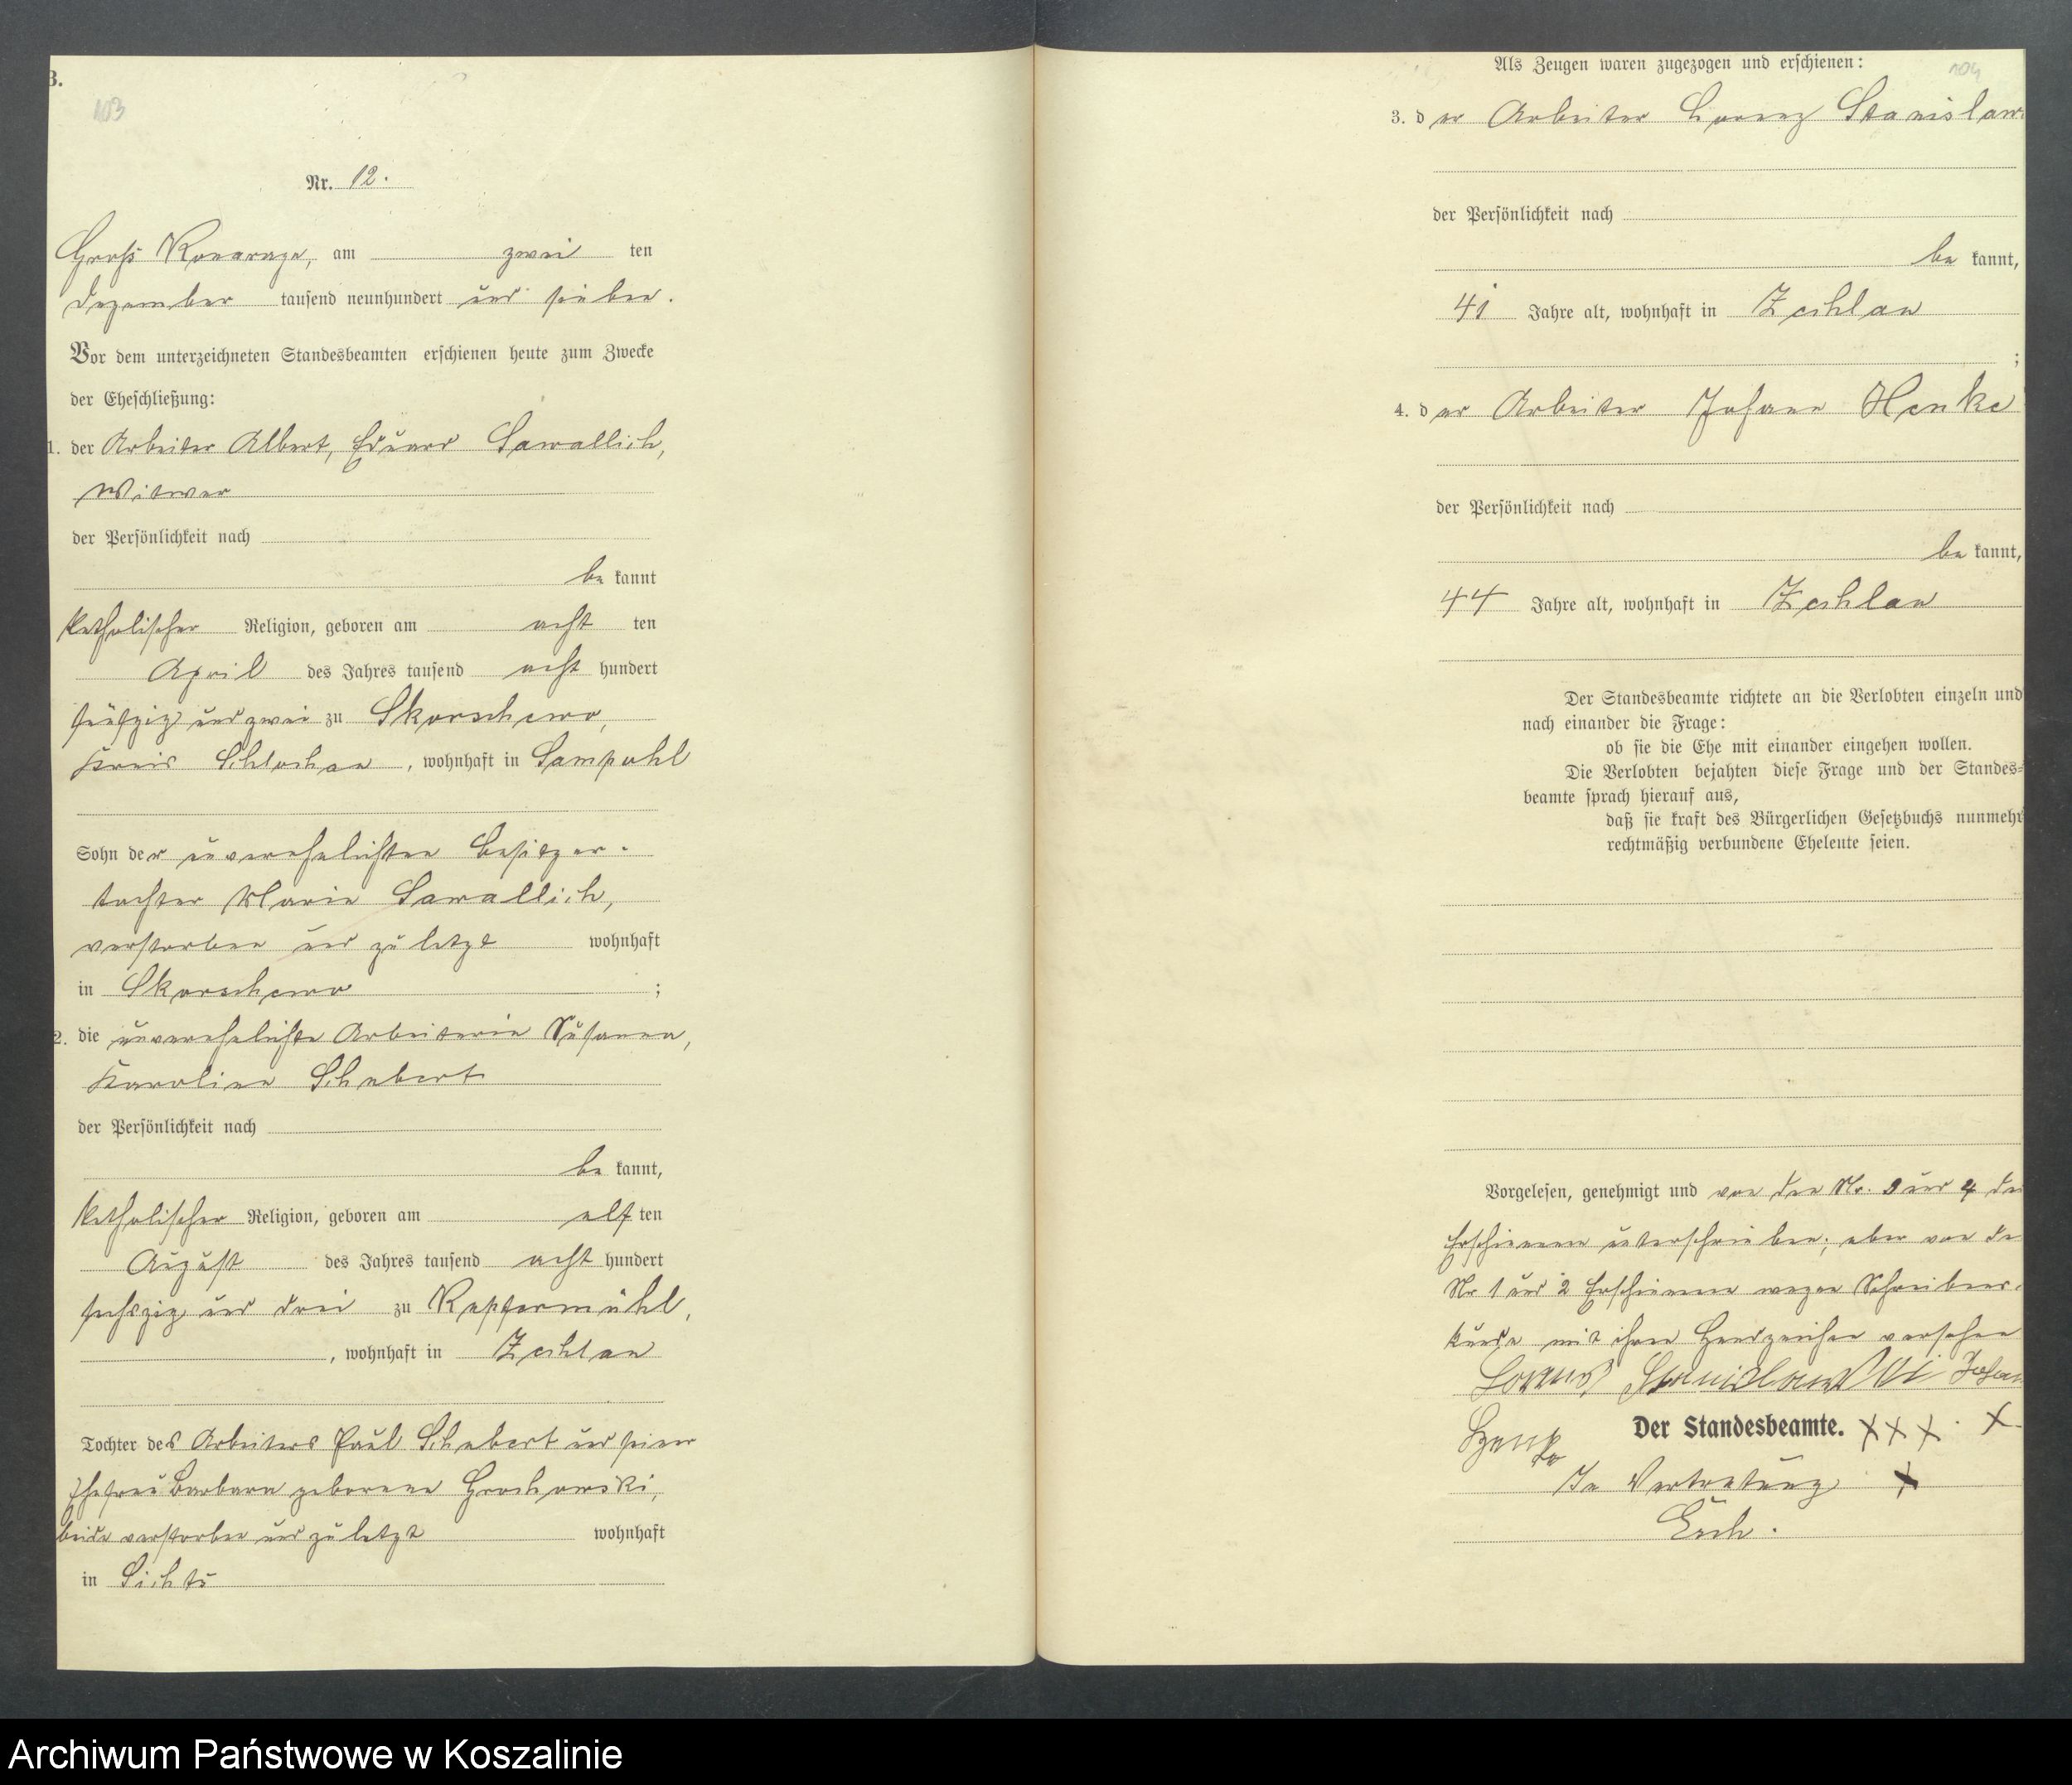 B.
103
Nr. 12.
Gross Konarzyn, am zwei ten
Dezember tausend neunhundert und sieben.
Vor dem unterzeichneten Standesbeamten erschienen heute zum Zwecke
der Eheschließung:
1. der Arbeiter Albert, Eduard Sawallich,
Witwer
der Persönlichkeit nach
be kannt
katholischer Religion, geboren am acht ten
April des Jahres tausend acht hundert
fünfzig und zwei zu Skorschewo,
Kreis Schlochau, wohnhaft in Sampohl
Sohn der unverehelichten Besitzer-
tochter Marie Sawallich,
verstorben und zuletzt wohnhaft
in Skorschewo ;
2. die unverehelichte Arbeiterin Susanna,
Karoline Schubert
der Persönlichkeit nach
be kannt,
katholischer Religion, geboren am elf ten
August des Jahres tausend acht hundert
sechszig und drei zu Kupfermühl,
, wohnhaft in Zechlau
Tochter des Arbeiters Paul Schubert und seiner
Ehefrau Barbara geborene Grochowski,
beide verstorben und zuletzt wohnhaft
in Lichts
Als Zeugen waren zugezogen und erschienen:
104
3. der Arbeiter Lorenz Stanislaw
der Persönlichkeit nach
be kannt,
41 Jahre alt, wohnhaft in Zechlau
;
4. der Arbeiter Johann Henke
der Persönlichkeit nach
be kannt,
44 Jahre alt, wohnhaft in Zechlau
Der Standesbeamte richtete an die Verlobten einzeln und
nach einander die Frage:
ob sie die Ehe mit einander eingehen wollen.
Die Verlobten bejahten diese Frage und der Standes=
beamte sprach hierauf aus,
daß sie kraft des Bürgerlichen Gesetzbuchs nunmehr
rechtmäßig verbundene Eheleute seien.
Vorgelesen, genehmigt und von den Nr. 3 und 4 de
Erschienenen unterschrieben; aber von de
Nr 1 und 2 Erschienenen wegen Schreibens-
kunde mit ihren Handzeichen versehen
Lorenz Stanislawski Johan
Henke Der Standesbeamte. XXX. X
In Vertretung X
Esch.
Archiwum Państwowe w Koszalinie